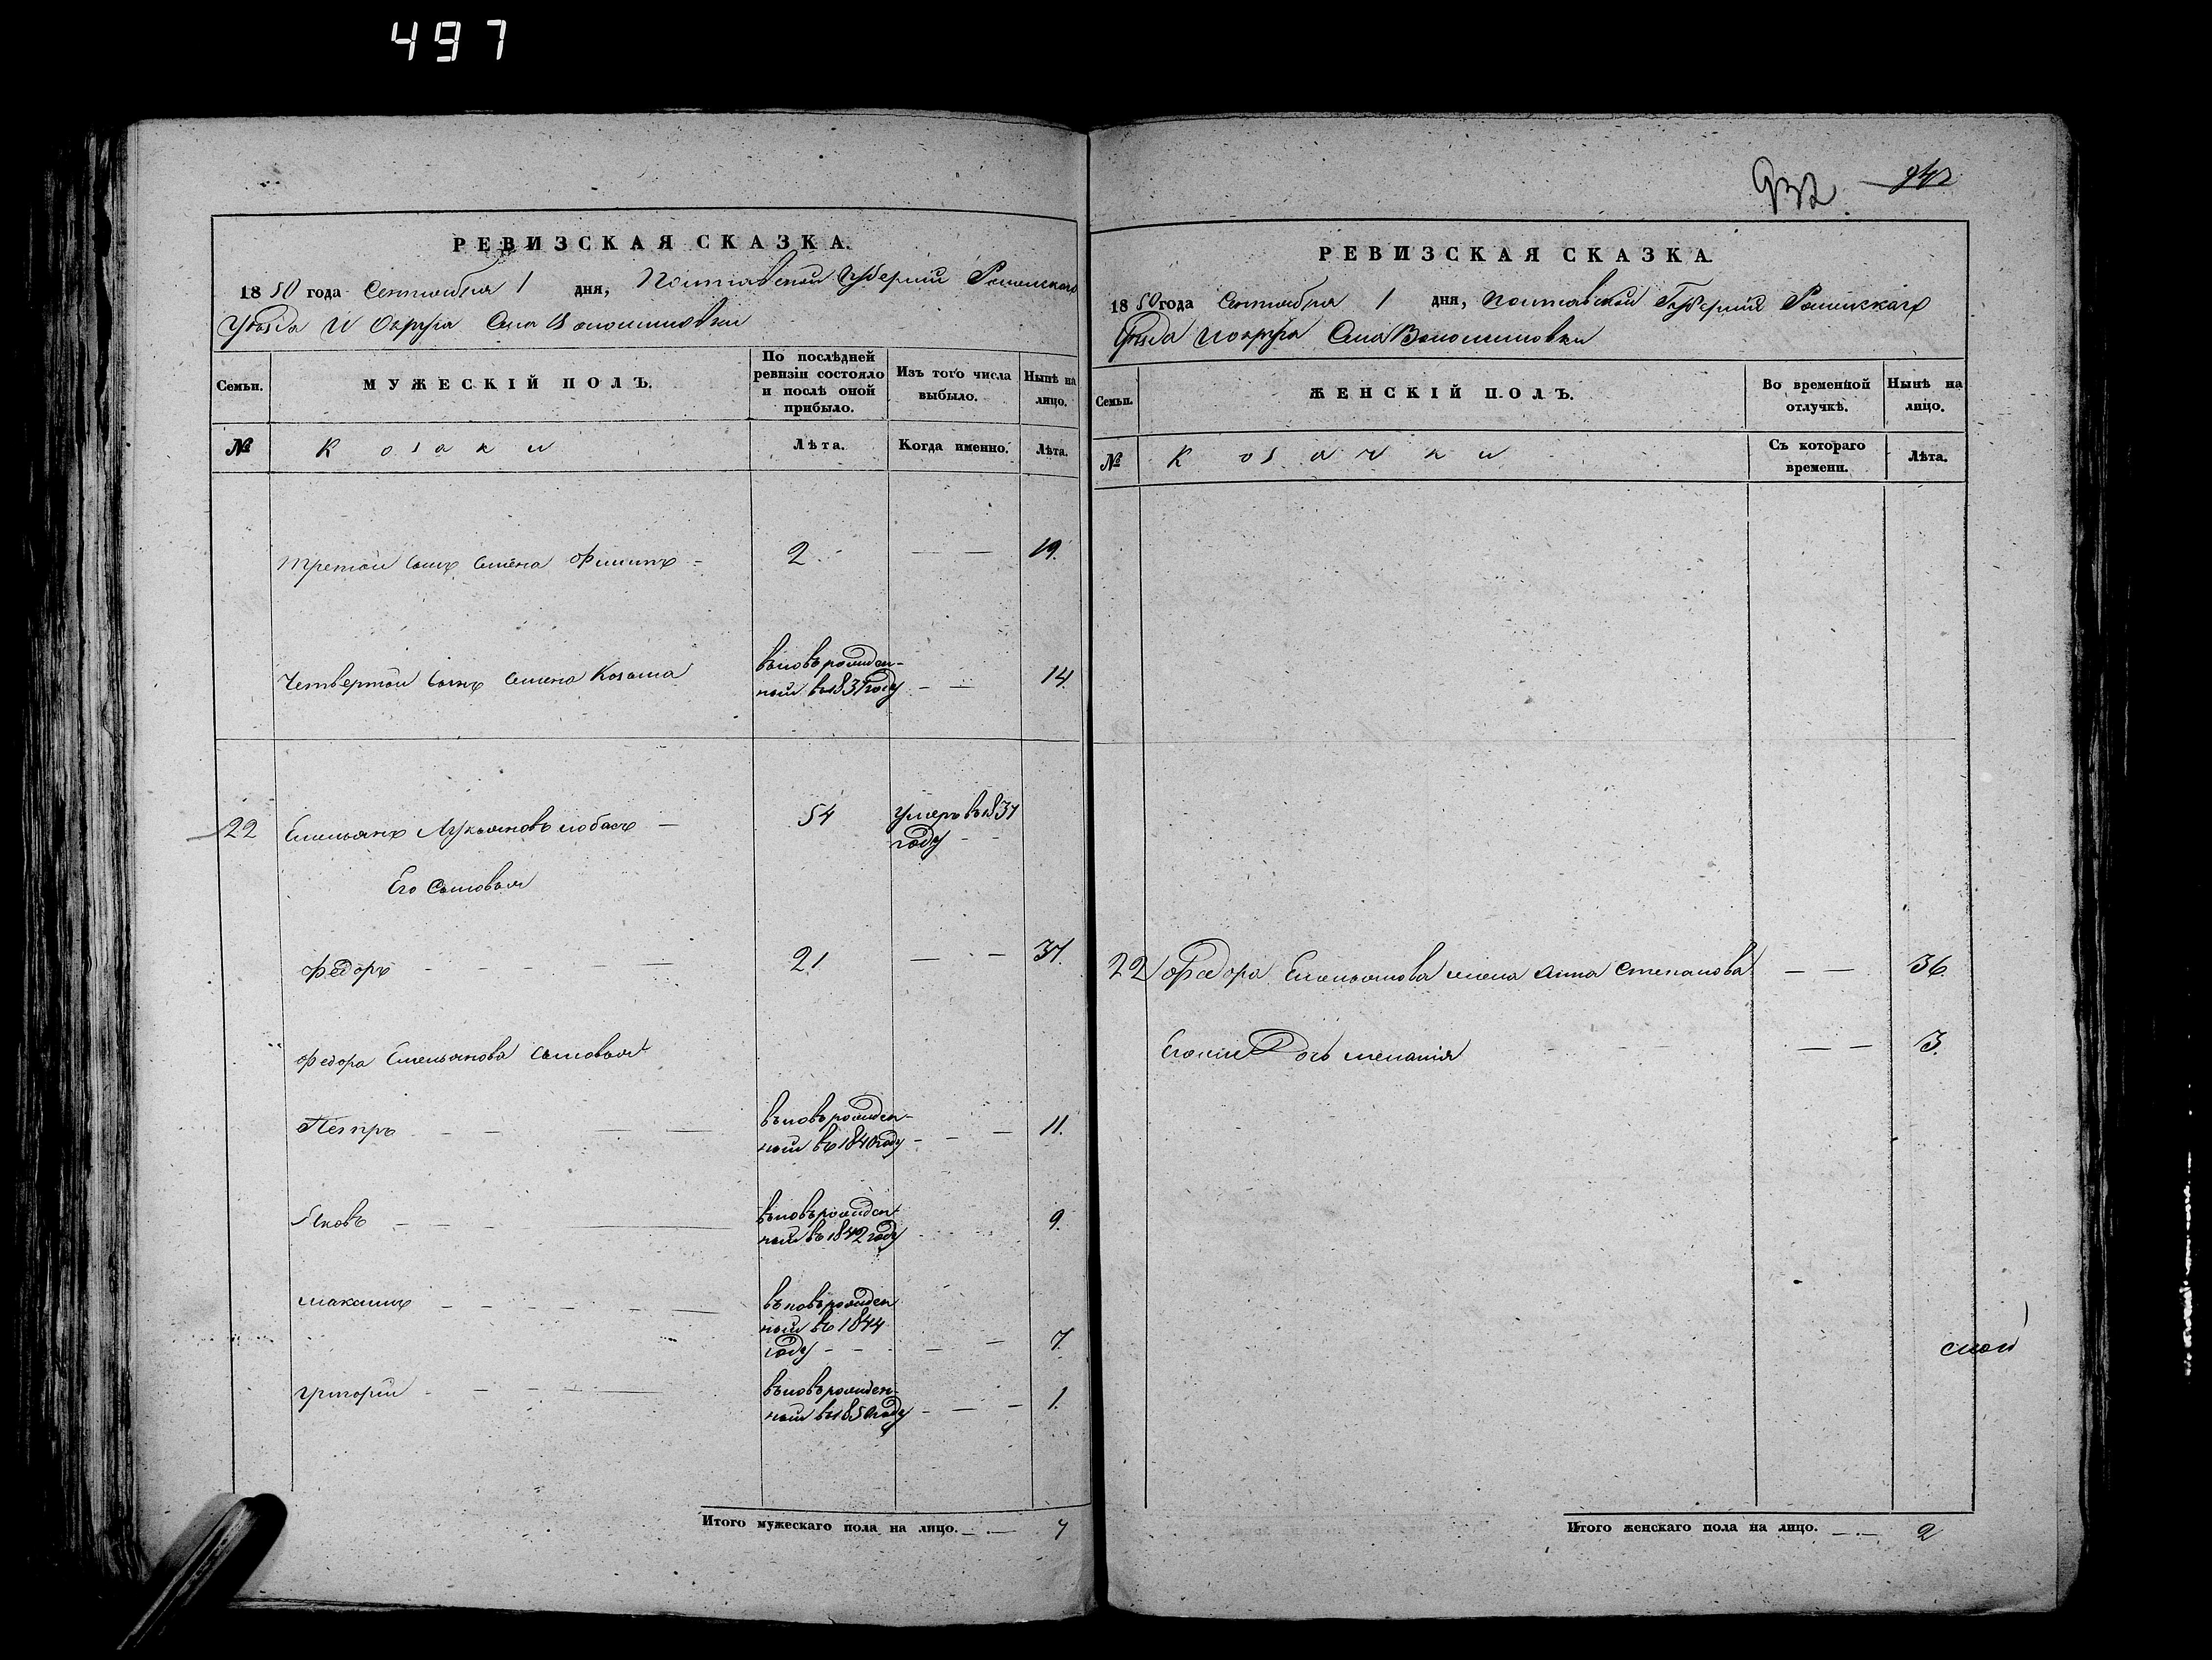 497
РЕВИЗСКАЯ СКАЗКА.
1850 года Сентября 1 дня, Полтавской Губернии Роменскаго
Уѣзда И Округа Села Волошиновки
Семьи.
МУЖЕСКІЙ ПОЛЪ.
По послѣдней ревизіи состояло и послѣ оной прибыло.
Изъ того числа выбыло.
Нынѣ на лицо.
№
Козаки
Лѣта.
Когда именно.
Лѣта.
третой сынъ Семена Филипъ 2 19.
Четвертой сынъ Семена Козьма
вновъ рожден-
ной в 1837 году 14.
22 Емельянъ Лукьяновъ 54
умеръ въ 1837
году
Его Сыновья
Федоръ 21 37.
Федора Емельянова сыновья
Петръ
вновъ рожден-
ной въ 1840 году 11.
Яковъ
вновъ рожден
ной въ 1842 году 9.
Максимъ
вновъ рожден
ной въ 1844
году 7.
Григорій
вновъ рожден-
ной въ 1850 году 1.
Итого мужескаго пола на лицо. 7
932 942
РЕВИЗСКАЯ СКАЗКА.
1850 года Сентября 1 дня, Полтавской Губерніи Роменскаго
Уѣзда и округа Села Волошиновки
Семьи.
ЖЕНСКІЙ ПОЛЪ.
Во временной отлучкѣ.
Нынѣ на лицо.
№
Козачки
Съ котораго времени.
Лѣта.
22 Федора Емельянова жена Анна Степанова 36.
Дочь Меланія 13.
Итого женскаго пола на лицо. 2